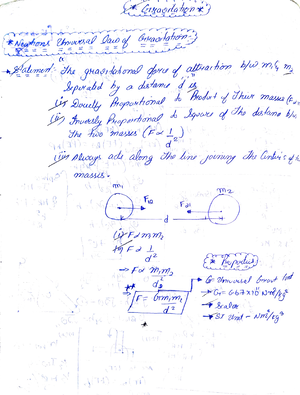 * Gravitation *
* Newtons Universal Law of Gravitation:-
* Statement:- "The gravitational force of attraction b/w m₁ & m₂
Seperated by a distance d is"
(i) Directly Proportional to Product of Their masses
(ii) Inversly Proportional to Square of the distance b/w
The two masses (F ∝ 1/d²)
(iii) Always acts along the line joining the Centers of the
masses.
m₁ m₂
F₁₂ F₂₁
d
(i) F ∝ m₁m₂
(ii) F ∝ 1/d²
⇒ F ∝ m₁m₂/d²
⇒ F = Gm₁m₂/d²
→ G = Universal Gravt
→ Scalar
→ SI Unit - Nm²/kg²